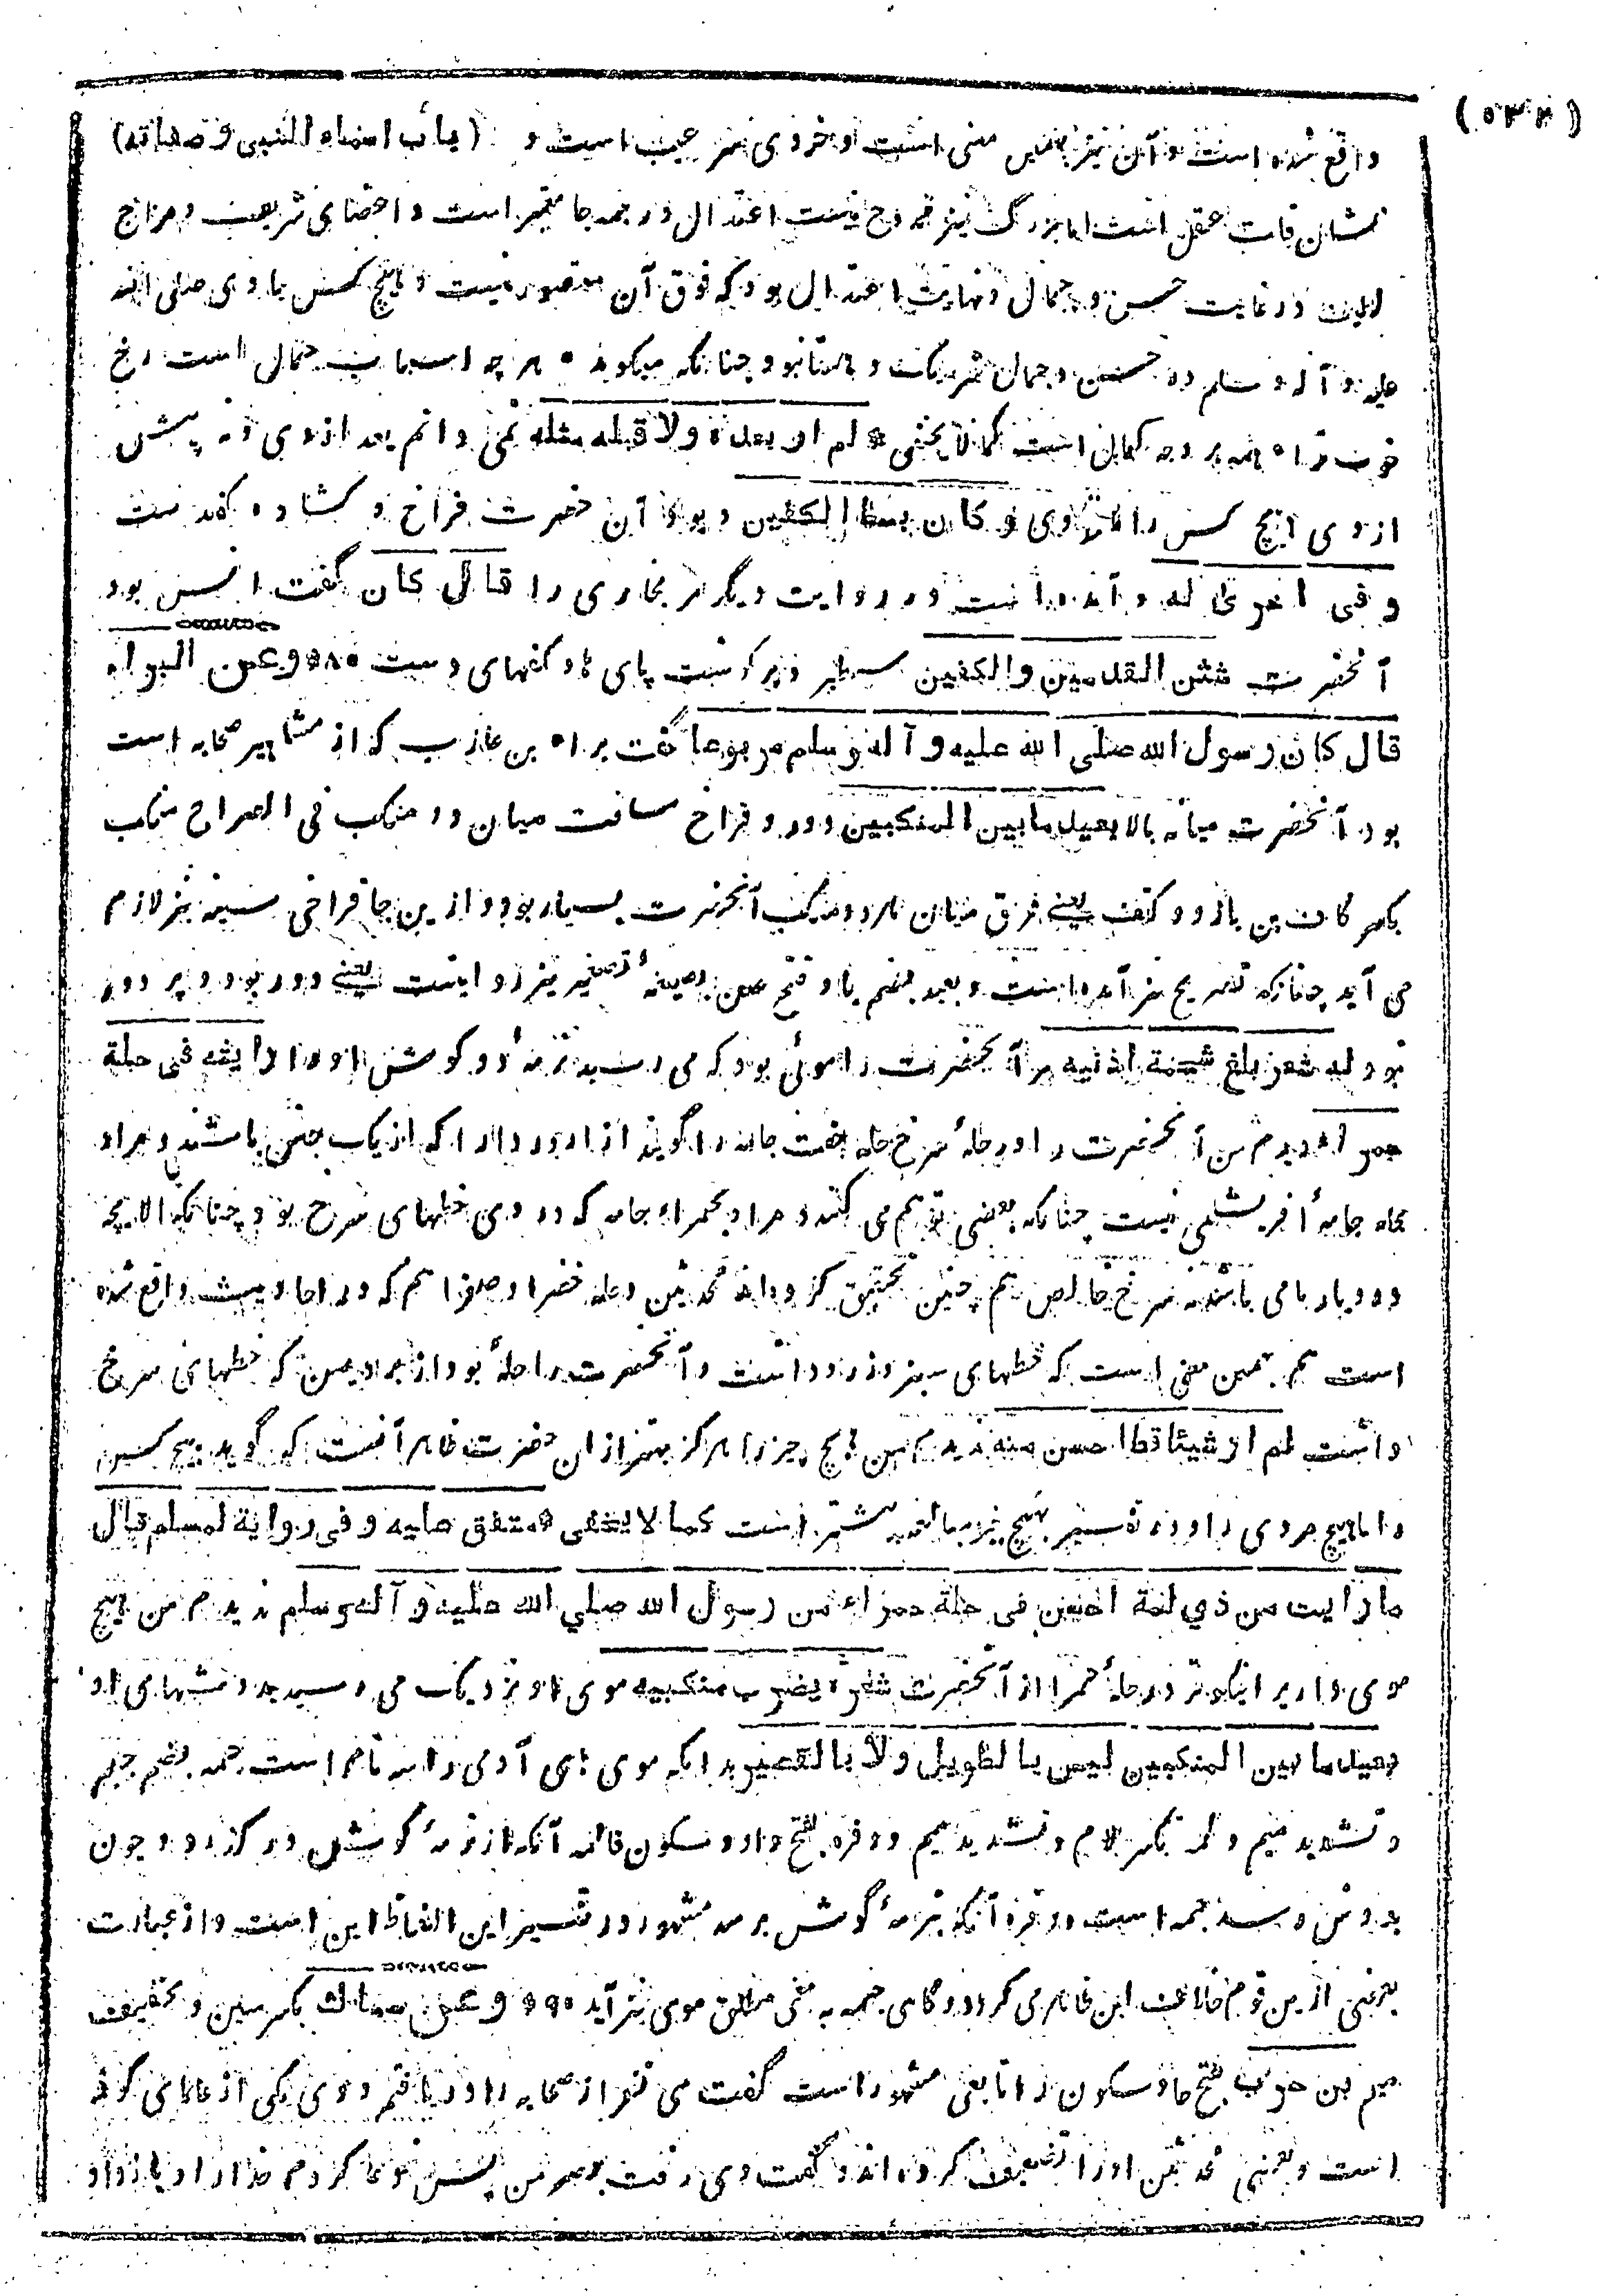 (باب اسماء النبی و صفاته)
واقع شده است و آن نیز بهمین معنی است و خردی سر عیب است و
نشان قلت عقل است اما بزرگ نیز ممدوح نیست اعتدال در همه جا معتبر است و اعضای شریف و مزاج
لطیف در غایت حسن و جمال و نهایت اعتدال بود که فوق آن متصور نیست و هیچ کس با وی صلی الله
علیه و آله و سلم در حسن و جمال شریک و همتا نبود چنانکه میگوید • هر چه اسباب جمال است رخ
خوب ترا • همه بر وجه کمال است کما لا یخفی * لم ار بعده ولا قبله مثله نمی دانم بعد از وی و نه پیش
از وی هیچ کس را مساوی وی و کان بسط الکفین و بود آن حضرت فراخ و کشاده کف دست
و فی اخری له و آمده است در روایت دیگر مر بخاری را قال کان گفت انس بود
آنحضرت شثن القدمین والکفین سطبر و پر گوشت پای ها و کفهای دست ۸۵* وعن البراء
قال کان رسول الله صلی الله علیه و آله و سلم مربوعا گفت براء بن عازب که از مشاهیر صحابه است
بود آنحضرت میانه بالا بعید ما بین المنکبین دور و فراخ مسافت میان دو منکب فی الصراح منکب
بکسر کاف بن بازو و کتف یعنے فرق میان هر دو منکب آنحضرت بسیار بود و ازین جا فراخی سینه نیز لازم
می آید چنانکه تصریح نیز آمده است و بعید بضم با و فتح عین بصیغهٔ تصغیر نیز روایت است یعنے دور بود و پر دور
نبود له شعر بلغ شحمة اذنیه مر آنحضرت را موئی بود که می رسید نرمهٔ دو گوش او را رایته فی حلة
حمراء دیدم من آنحضرت را در حلهٔ سرخ حله جفت جامه را گویند ازار و ردا را که از یک جنس باشند و مراد
بحله جامهٔ ابریشمی نیست چنانکه بعضی توهم می کنند و مراد بحمراء جامه که در وی خطهای سرخ بود چنانکه الایچه
و دو یارها می باشد نه سرخ خالص هم چنین تحقیق کرده اند محدثین و حله خضرا و صفرا هم که در احادیث واقع شده
است هم بهمین معنی است که خطهای سبز و زرد داشت و آنحضرت را حلهٔ بود از برد یمن که خطهای سرخ
داشت لم ار شیئا قط احسن منه ندیدم من هیچ چیز را هرگز بهتر از ان حضرت ظاهر آنست که گوید هیچ کس
را یا هیچ مردی را و در تفسیر بهیچ چیز مبالغه بیشتر است کما لا یخفی * متفق علیه و فی روایة لمسلم قال
ما رایت من ذی لمة احسن فی حلة حمراء من رسول الله صلی الله علیه و آله وسلم ندیدم من هیچ
موی دار را نیکوتر در حلهٔ حمرا از آنحضرت شعره یضرب منکبیه موی او نزدیک می رسید بدوشهای او
بعید ما بین المنکبین لیس بالطویل ولا بالقصیر بدانکه موی های آدمی را سه نام است جمه بضم جیم
و تشدید میم و لمه بکسر لام و تشدید میم و وفره بفتح واو و سکون فا لمه آنکه از نرمهٔ گوش در گذرد و چون
بدوش رسد جمه است و وفره آنکه بنرمهٔ گوش برسد مشهور در تفسیر این الفاظ این است و از عبارت
بعضی ازین قوم خلاف این ظاهر می گردد و گاهی جمه به معنی مطلق موی نیز آید ۹۵* وعن سماك بکسر سین و تخفیف
میم بن حرب بفتح حا و سکون را تابعی مشهور است گفت سی نفر از صحابه را دریافتم و وی یکی از علمای کوفه
است و بعضی محدثین او را تضعیف کرده اند و گفت وی رفت بصر من پس دعا کردم خدا را و باز داد